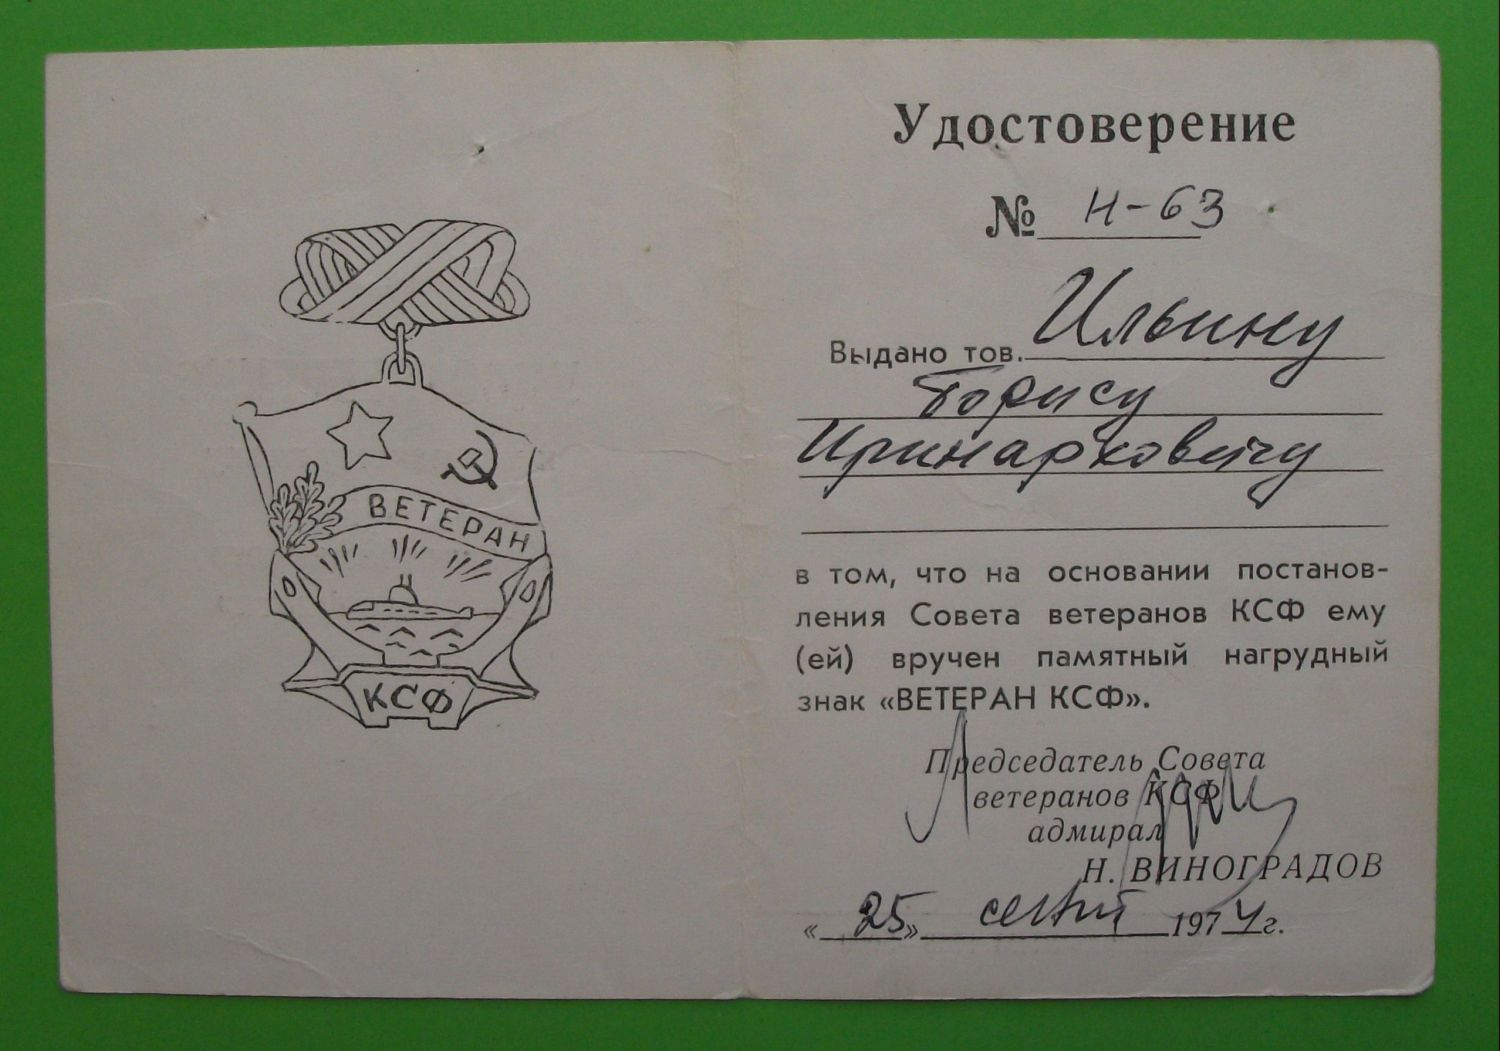 ВЕТЕРАН
КСФ
Удостоверение
№ Н-63
Выдано тов. Ильину
Борису
Иринарховичу
в том, что на основании постанов-
ления Совета ветеранов КСФ ему
(ей) вручен памятный нагрудный
знак «ВЕТЕРАН КСФ».
Председатель Совета
ветеранов КСФ
адмирал
Н. ВИНОГРАДОВ
«25» сент 1974 г.